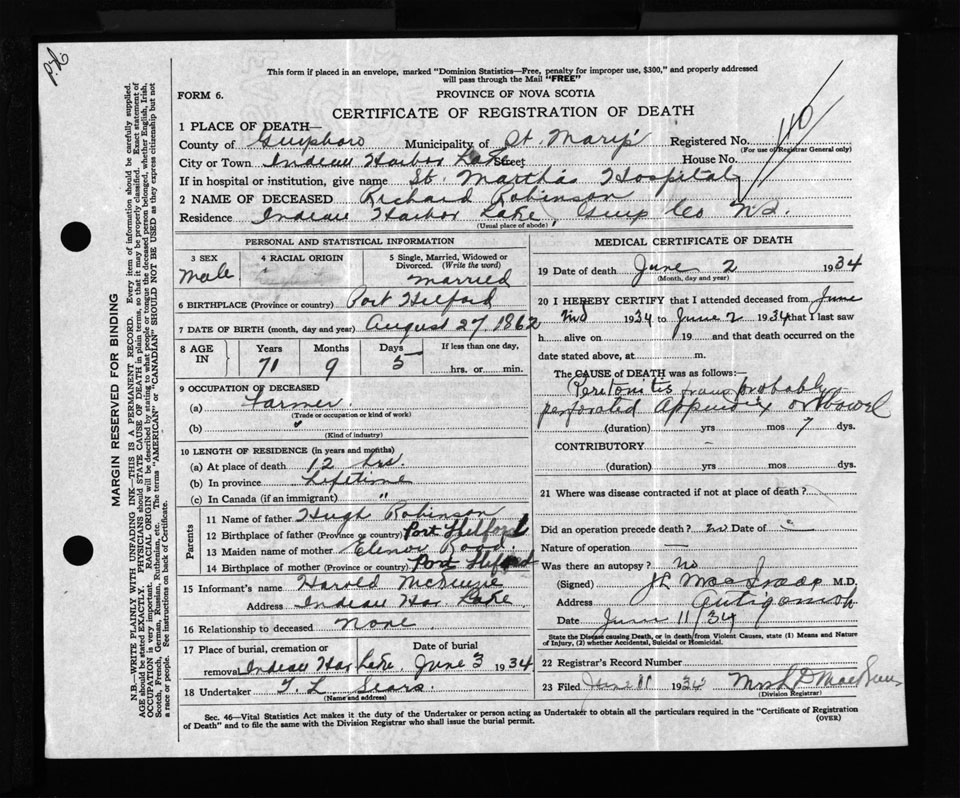 P.L.
This form if placed in an envelope, marked "Dominion Statistics—Free, penalty for improper use, $300," and properly addressed
will pass through the Mail "FREE"
FORM 6.
PROVINCE OF NOVA SCOTIA
CERTIFICATE OF REGISTRATION OF DEATH
1 PLACE OF DEATH—
County of Guysboro Municipality of St. Mary's Registered No.
(For use of Registrar General only)
City or Town Indian Harbor Lake Street House No.
If in hospital or institution, give name St. Martha's Hospital
2 NAME OF DECEASED Richard Robinson
Residence Indian Harbor Lake, Guys Co N.S.
(Usual place of abode)
PERSONAL AND STATISTICAL INFORMATION
3 SEX
Male
4 RACIAL ORIGIN
5 Single, Married, Widowed or
Divorced. (Write the word)
Married
6 BIRTHPLACE (Province or country) Port Hilford
7 DATE OF BIRTH (month, day and year) August 27, 1862
8 AGE IN
Years Months Days If less than one day,
71 9 5
hrs. or min.
9 OCCUPATION OF DECEASED
(a) Farmer
(Trade or occupation or kind of work)
(b)
(Kind of industry)
10 LENGTH OF RESIDENCE (in years and months)
(a) At place of death 12 hrs.
(b) In province Lifetime
(c) In Canada (if an immigrant) "
Parents
11 Name of father Hugh Robinson
12 Birthplace of father (Province or country) Port Hilford
13 Maiden name of mother Elenor
14 Birthplace of mother (Province or country) Port Hilford
15 Informant's name Harold
Address Indian Har Lake
16 Relationship to deceased None
17 Place of burial, cremation or Date of burial
removal Indian Har Lake June 3 1934
18 Undertaker T. L. Sears
(Name and address)
MEDICAL CERTIFICATE OF DEATH
19 Date of death June 2 1934
(Month, day and year)
20 I HEREBY CERTIFY that I attended deceased from June
2nd 1934 to June 2 1934 that I last saw
h alive on 19 and that death occurred on the
date stated above, at m.
The CAUSE OF DEATH was as follows:—
Peritonitis from probably
perforated Appendix or Bowel
(duration) yrs mos 7 dys.
CONTRIBUTORY —
(duration) yrs mos dys.
21 Where was disease contracted if not at place of death?
Did an operation precede death? no Date of —
Nature of operation —
Was there an autopsy? No
(Signed) M.D.
Address Antigonish
Date June 11/34
State the Disease causing Death, or in death from Violent Causes, state (1) Means and Nature
of Injury, (2) whether Accidental, Suicidal or Homicidal.
22 Registrar's Record Number
23 Filed June 11 193
(Division Registrar)
Sec. 46—Vital Statistics Act makes it the duty of the Undertaker or person acting as Undertaker to obtain all the particulars required in the "Certificate of Registration
of Death" and to file the same with the Division Registrar who shall issue the burial permit.
(OVER)
MARGIN RESERVED FOR BINDING
N.B.—WRITE PLAINLY WITH UNFADING INK—THIS IS A PERMANENT RECORD. Every item of information should be carefully supplied.
AGE should be stated EXACTLY. PHYSICIANS should STATE CAUSE OF DEATH in plain terms, so that it may be properly classified. Exact statement of
OCCUPATION is very important. RACIAL ORIGIN will be described by stating to what people or tongue the deceased person belonged, whether English, Irish,
Scotch, French, German, Russian, Ruthenian, etc. The terms "AMERICAN" or "CANADIAN" SHOULD NOT BE USED as they express citizenship but not
a race or people. See instructions on back of Certificate.